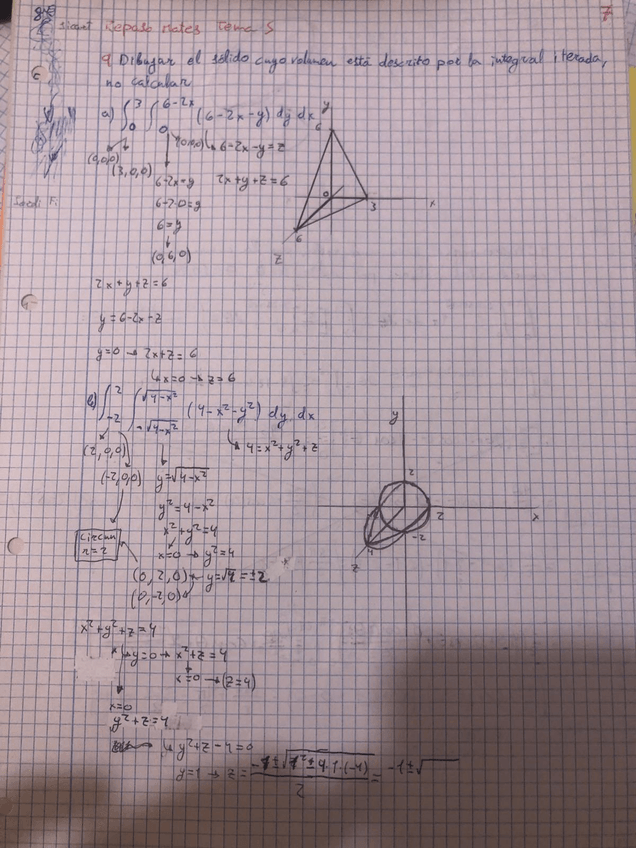 7
Repaso Mates Tema 5
9 Dibujar el sólido cuyo volumen está descrito por la integral iterada,
no calcular
a) ∫₀³ ∫₀^(6-2x) (6-2x-y) dy dx
(0,0,0)
(3,0,0)
6-2x-y=z
6-2x=y
2x+y+z=6
6-2·0=y
6=y
(0,6,0)
y
6
0
3
x
6
z
2x+y+z=6
y=6-2x-z
y=0 → 2x+z=6
x=0 → z=6
b) ∫₋₂² ∫_(-√(4-x²))^(√(4-x²)) (4-x²-y²) dy dx
4=x²+y²+z
(2,0,0)
(-2,0,0)
y=√(4-x²)
y²=4-x²
x²+y²=4
x=0 → y²=4
circun
r=2
(0,2,0) ← y=√4=±2
(0,-2,0)
y
2
2
x
-2
4
z
x²+y²+z=4
y=0 → x²+z=4
x=0 → (z=4)
x=0
y²+z=4
y²+z-4=0